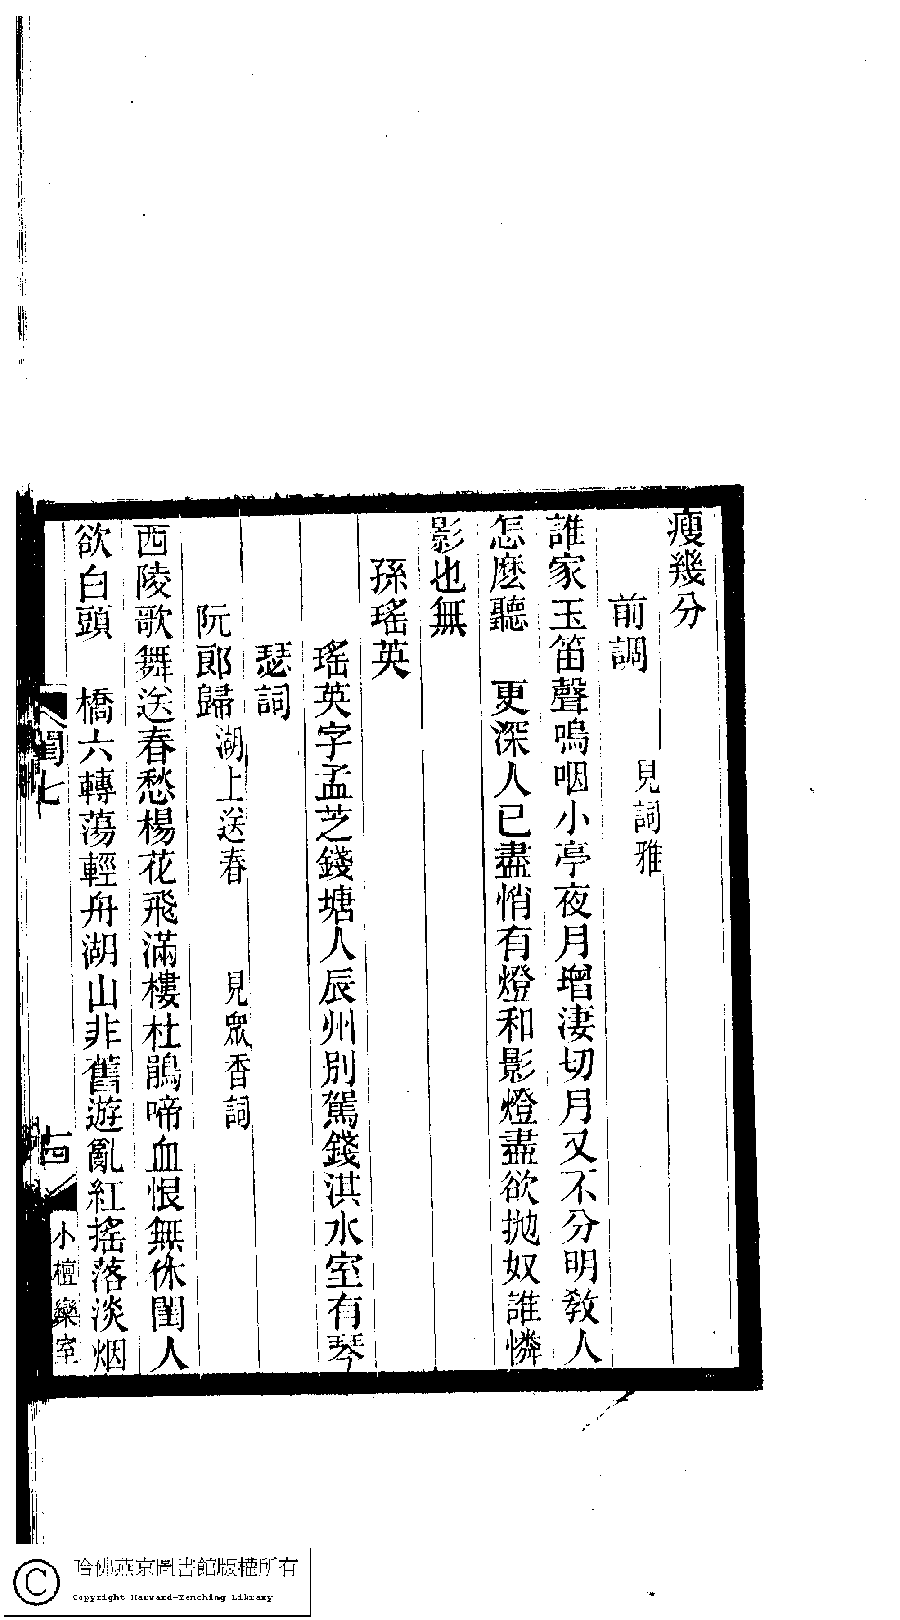 瘦幾分
前調　見詞雅
誰家玉笛聲嗚咽小亭夜月增淒切月又不分明敎人
怎麽聽　更深人已盡悄有燈和影燈盡欲拋奴誰憐
影也無
孫瑤英
瑤英字孟芝錢塘人辰州別駕錢淇水室有琴
瑟詞
阮郞歸湖上送春　見眾香詞
西陵歌舞送春愁楊花飛滿樓杜鵑啼血恨無休閨人
欲白頭　橋六轉蕩輕舟湖山非舊遊亂紅搖落淡烟
閨七
古
小檀欒室
哈佛燕京圖書館版權所有
Copyright Harvard-Yenching Library